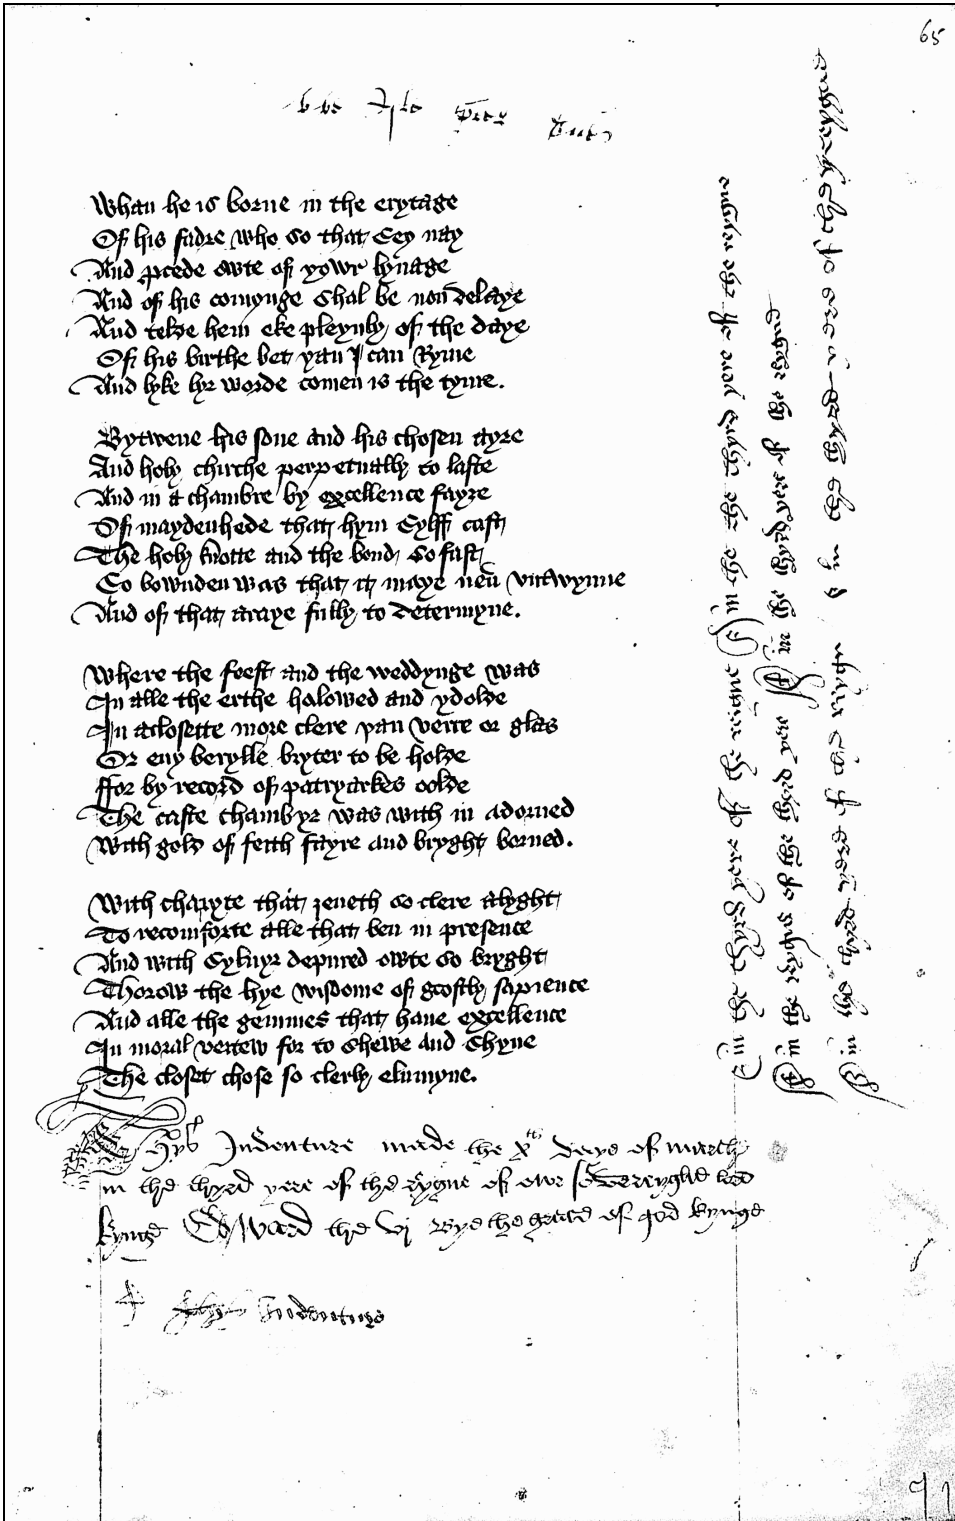 65
Whan he is borne in the erytage
Of his fadre who so that sey nay
And procede owte of yowr lynage
And of his comynge shal be non delaye
And telde hem eke pleynly of the daye
Of his birthe bet yan I can Ryme
And lyke hyr worde comen is the tyme.
Bytwene his sone and his chosen ayre
And holy chirche perpetually to laste
And in a chambre by excellence fayre
Of maydenhede that hym sylff cast
The holy knotte and the bond so fast
So bownden was that it maye neuer vntwynne
And of that araye fully to determyne.
Where the feest and the weddynge was
In alle the erthe halowed and ydolde
In a closette more clere yan verre or glas
Or eny berylle bryter to be holde
ffor by record of patryarkes oolde
The caste chambyr was with in adorned
With gold of feith fayre and bryght borned.
With charyte that zeneth so clere alyght
To recomforte alle that ben in presence
And with syluyr depured owte so bryght
Thorow the hye wisdome of goostly sapience
And alle the gemmes that haue excellence
In moral vertew for to shewe and shyne
The closet chose so clerly elumyne.
Thys Indenture made the xth daye of march
in the thyrd yere of the reygne of owr souereyghe lord
kynge Edward the vj Bye the grace of god kynge
Indenture
in the thyrd yere of the reigne in the the thyrd yere of the reygne
in the reghne of the thord yere in the thyrd yere of the reygne
in the thyrd yere of
91